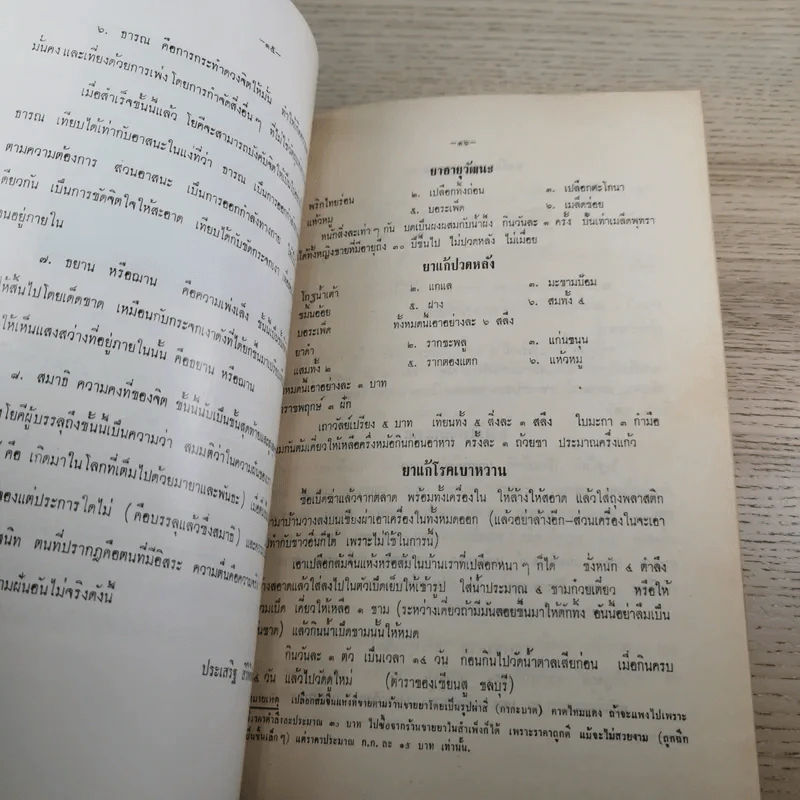 -๑๕-
๖. ธารณ คือการกระทำดวงจิตให้มั่น ทำให้
มั่นคง และเที่ยงด้วยการเพ่ง โดยการกำจัดสิ่งอื่น ๆ ที่ไม่
เมื่อสำเร็จขั้นนี้แล้ว โยคีจะสามารถบังคับจิตให้
ธารณ เทียบได้เท่ากับอาสนะในแง่ที่ว่า ธารณ เป็นการออกกำลัง
ตามความต้องการ ส่วนอาสนะ เป็นการออกกำลังทางกาย
เดียวกัน เป็นการขัดจิตใจให้สะอาด เทียบได้กับขัดกระจกเงา
อยู่ภายใน
๗. ธยาน หรือฌาน คือความเพ่งเล็ง ขั้นนี้เป็น
ให้สิ้นไปโดยเด็ดขาด เหมือนกับกระจกเงาดังที่ได้ยกขึ้นมา
ให้เห็นแสงสว่างที่อยู่ภายในนั้น คือธยาน หรือฌาน
๘. สมาธิ ความคงที่ของจิต ขั้นนี้นับเป็นขั้นสุดท้าย
โยคีผู้บรรลุถึงขั้นนี้เป็นความว่า สมมติว่าในความฝัน
คือ เกิดมาในโลกที่เต็มไปด้วยมายาและพันธะ) เมื่อ
แต่ประการใดไม่ (คือบรรลุแล้วซึ่งสมาธิ) และ
นิท ตนที่ปรากฏคือตนที่มีอิสระ ความตื่นคือความ
ฝันอันไม่จริงดังนี้
ประเสริฐ
-๑๖-
ยาอายุวัฒนะ
พริกไทยร่อน ๒. เปลือกทิ้งถ่อน ๓. เปลือกตะโกนา
แห้วหมู ๕. บอระเพ็ด ๖. เมล็ดข่อย
หนักสิ่งละเท่า ๆ กัน บดเป็นผงผสมกับน้ำผึ้ง กินวันละ ๑ ครั้ง ปั้นเท่าเมล็ดพุทรา
ได้ทั้งหญิงชายที่มีอายุถึง ๓๐ ปีขึ้นไป ไม่ปวดหลัง ไม่เมื่อย
ยาแก้ปวดหลัง
โกฐน้ำเต้า ๒. แกแล ๓. มะขามป้อม
ขมิ้นอ้อย ๕. ฝาง ๖. สมทั้ง ๕
บอระเพ็ด ทั้งหมดนี้เอาอย่างละ ๖ สลึง
ยาดำ ๒. รากชะพลู ๓. แก่นขนุน
แสมทั้ง ๒ ๕. รากตองแตก ๖. แห้วหมู
หมดนี้เอาอย่างละ ๑ บาท
ราชพฤกษ์ ๓ ฝัก
เถาวัลย์เปรียง ๕ บาท เทียนทั้ง ๕ สิ่งละ ๑ สลึง ใบมะกา ๓ กำมือ
กันต้มเคี่ยวให้เหลือครึ่งหม้อกินก่อนอาหาร ครั้งละ ๑ ถ้วยชา ประมาณครึ่งแก้ว
ยาแก้โรคเบาหวาน
ซื้อเป็ดฆ่าแล้วจากตลาด พร้อมทั้งเครื่องใน ให้ล้างให้สะอาด แล้วใส่ถุงพลาสติก
มาบ้านวางลงบนเขียงผ่าเอาเครื่องในทั้งหมดออก (แล้วอย่าล้างอีก-ส่วนเครื่องในจะเอา
ทำกับข้าวอื่นก็ได้ เพราะไม่ใช้ในการนี้)
เอาเปลือกส้มจีนแห้งหรือส้มในบ้านเราที่เปลือกหนา ๆ ก็ได้ ชั่งหนัก ๔ ตำลึง
สะอาดแล้วใส่ลงไปในตัวเป็ดเย็บให้เข้ารูป ใส่น้ำประมาณ ๔ ชามก๋วยเตี๋ยว หรือให้
ท่วมเป็ด เคี่ยวให้เหลือ ๑ ชาม (ระหว่างเคี่ยวถ้ามีมันลอยขึ้นมาให้ตักทิ้ง อันนี้อย่าลืมเป็น
อันขาด) แล้วกินน้ำเป็ดชามนั้นให้หมด
กินวันละ ๑ ตัว เป็นเวลา ๑๔ วัน ก่อนกินไปวัดน้ำตาลเสียก่อน เมื่อกินครบ
๔ วัน แล้วไปวัดดูใหม่ (ตำราของเซียนสู ชลบุรี)
หมายเหตุ เปลือกส้มจีนแห้งที่ขายตามร้านขายยาโดยเป็นรูปผ่าสี่ (กากะบาด) คาดไหมแดง ถ้าจะแพงไปเพราะ
ราคาตำลึงละประมาณ ๓๐ บาท ไปซื้อจากร้านขายยาในสำเพ็งก็ได้ เพราะราคาถูกดี แม้จะไม่สวยงาม (ถูกฉีก
เป็นชิ้นเล็ก ๆ) แต่ราคาประมาณ ก.ก. ละ ๑๕ บาท เท่านั้น.